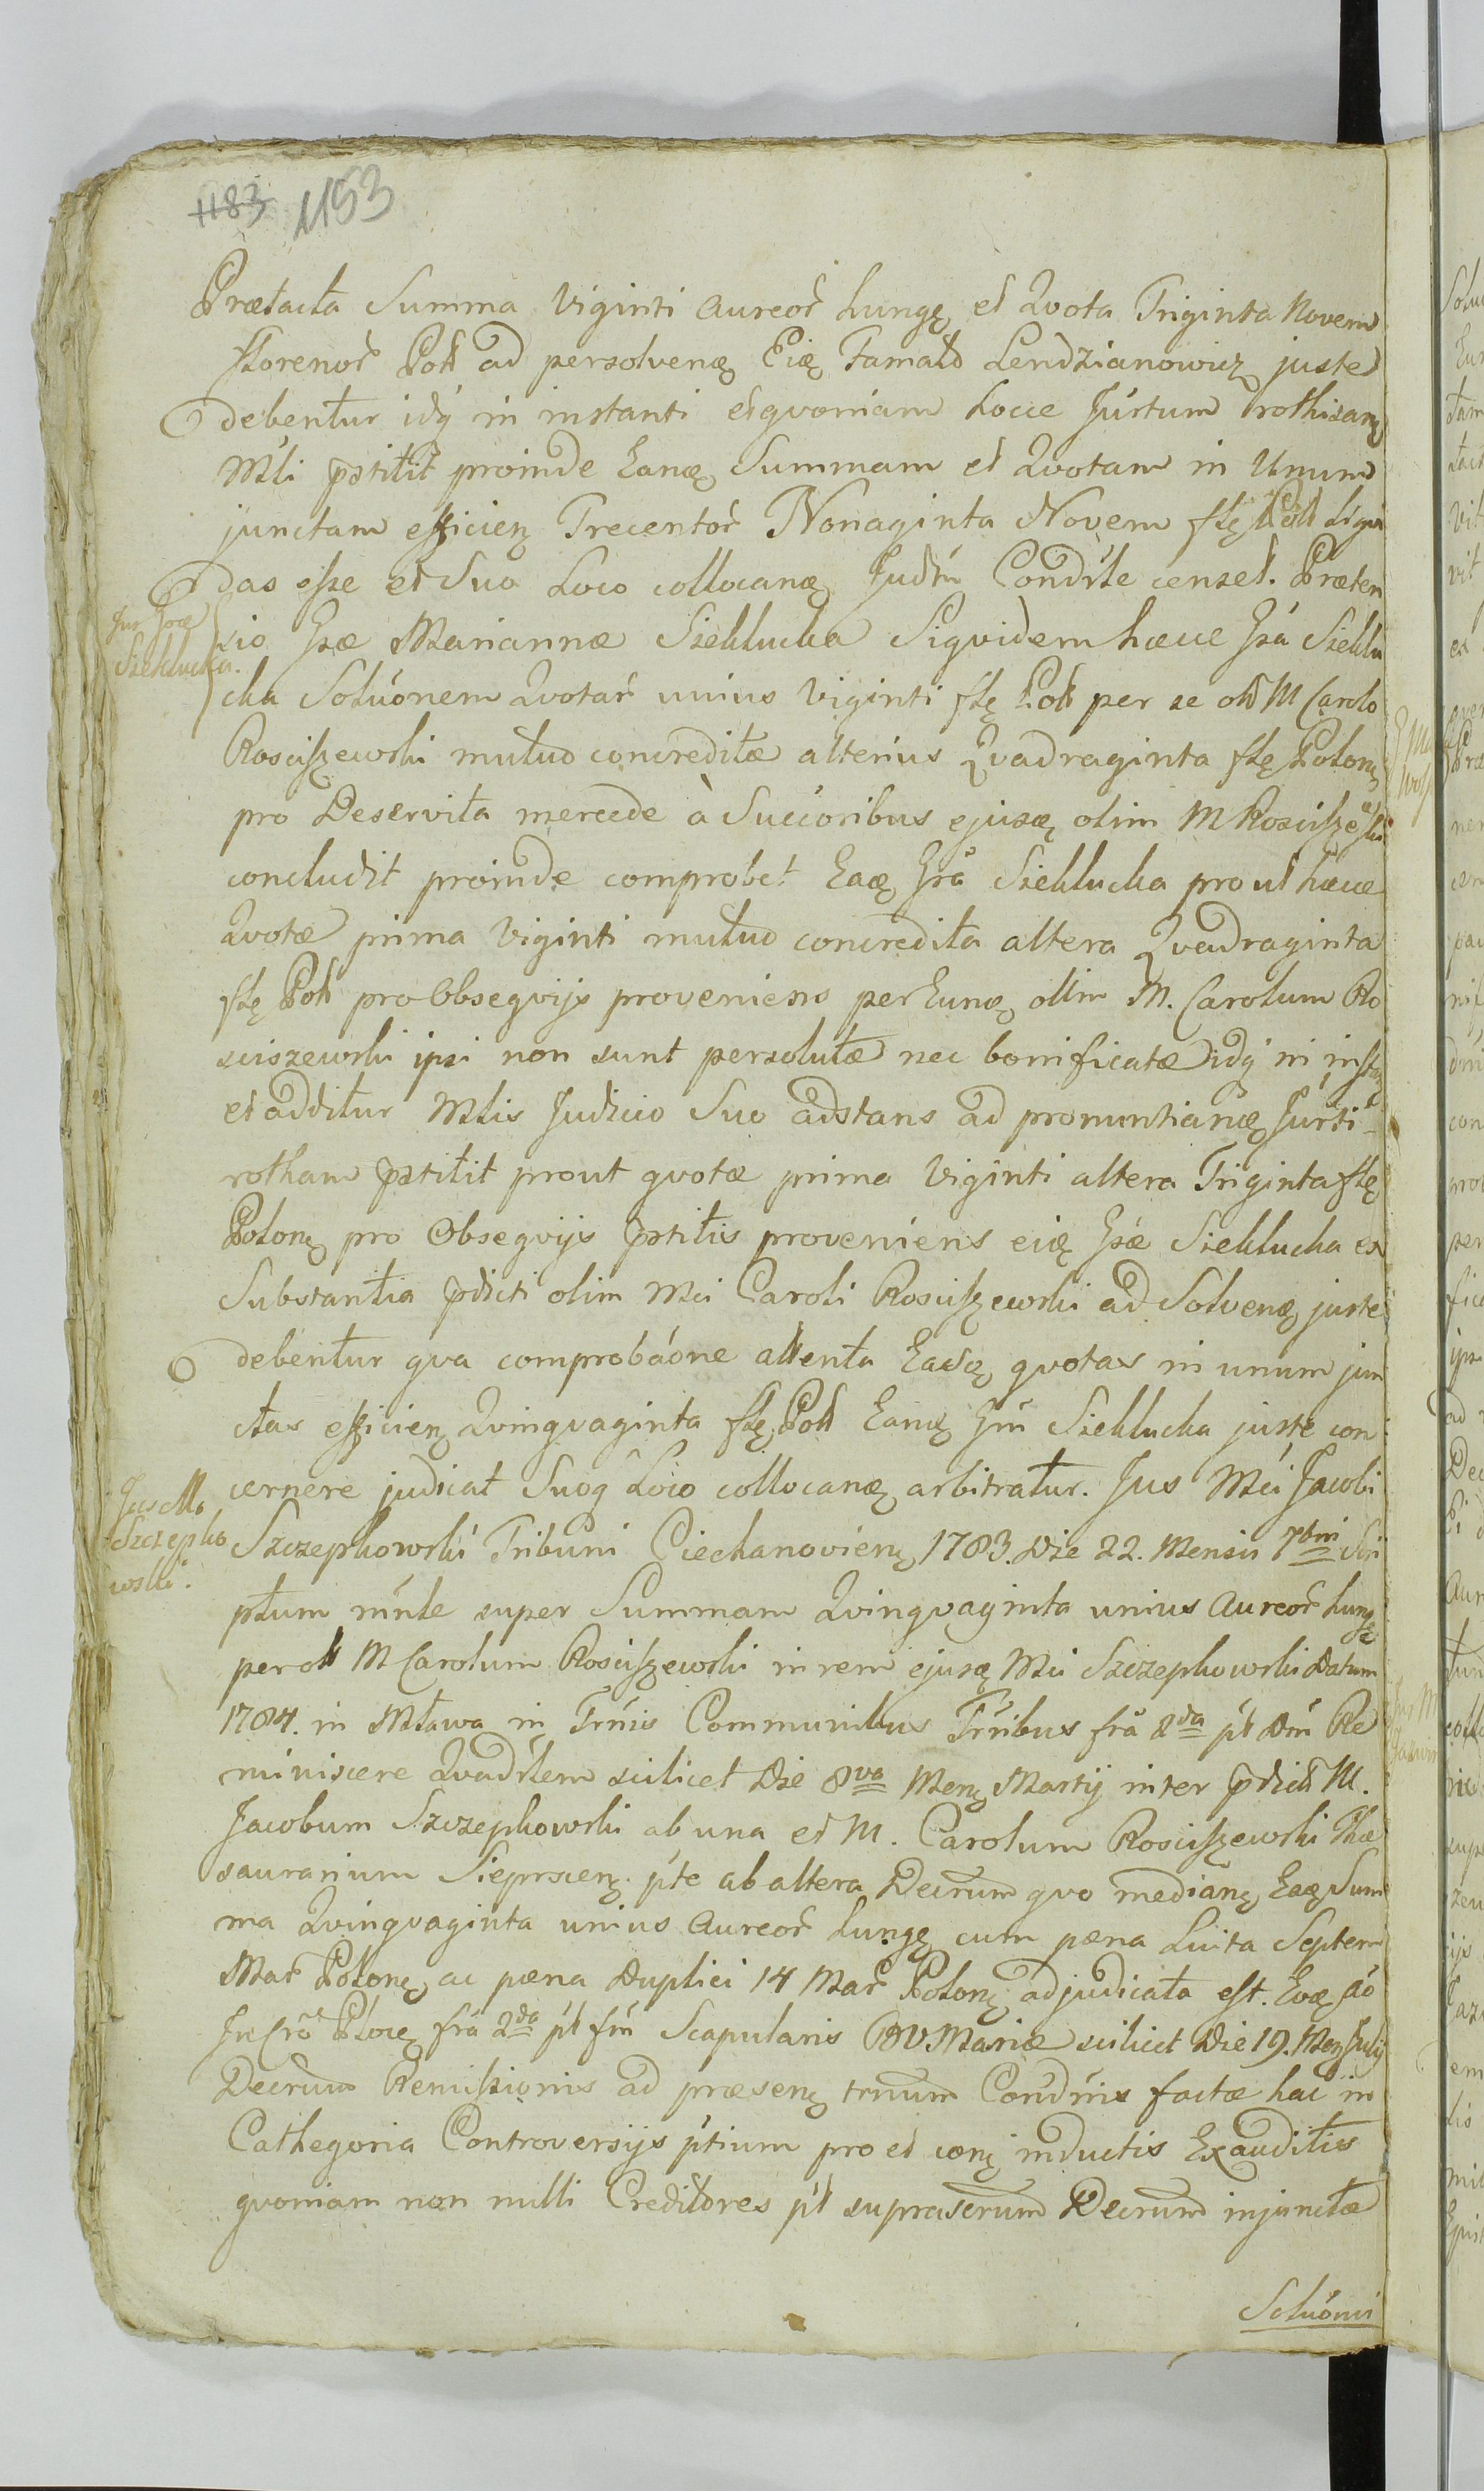 1183 1153
Prætacta Summa Viginti Aureor̃ hung̃ę et Qvota Triginta Novem
florenor̃ Poll ad persolvenę Eię Famato Lendzianowicz juste
debentur idq́ in instanti etqvoniam hocce Júrtum rothisanę
Mĺi p̃stitit proinde Eanę Summam et Qvotam in Unum
junctam efficienę Trecentor̃ Nonaginta Novem flę Poll Liqvi
das esse et Suo Loco collocanę Judm̃ Condr̃le censet. Præten
Jus Gsæ
Siekluckа.
sio Gsæ Mariannæ Sieklucka Siqvidem hæcce Gsá Sieklu
cka Solúonem Qvotar̃ unius Viginti flę Poll per se oll M Carolo
Rosciszewski mutuo concreditæ alterius Qvadraginta flę Polonę
pro Deservita mercede à Succoribus ejusdę olim M Rosciszewski
concludit proinde comprobet Eaę Gsa Sieklucka prout hæcce
Qvotæ prima Viginti mutuo concredita altera Qvadraginta
flę Poll pro Obseqvijs proveniens per Eunę olim M. Carolum Ro
sciszewski ipsi non sunt persolutæ nec bonificatæ idq́ in instę
et additur Mlis Judicio Suo adstans ad pronuntianę Júrti
rotham p̃stitit prout qvotæ prima Viginti altera Triginta flę
Polonę pro Obseqvijs p̃stitis proveniens eię Gsæ Sieklucka ex
Substantia p̃dicti olim Mci Caroli Rosciszewski ad Solvenę juste
debentur qva comprobaóne attenta Easdę qvotas in unum jun
ctas efficienę Qvinqvaginta flę Poll Eanę Gm̃ Sieklucka juste con
cernere judicat Suoq́ Loco collocanę arbitratur. Jus Mci Jacobi
Jus M
Szczepko
wski.
Szczepkowski Tribuni Ciechanovienę 1783. Die 22. Mensis 7bris Scri
ptum mńle super Summam Qvinqvaginta unius Aureor̃ hungę
per oll M Carolum Rosciszewski in rem ejusę Mci Szczepkowski Datum
1784. in Mława in Trńis Communibus Trŕibus fra 2da p̃t Dm̃ Re
miniscere Qvadr̃lem scilicet Die 8va Menę Martij inter p̃dictũ M.
Jacobum Szczepkowski ab una et M. Carolum Rosciszewski The
saurarium Sieprscenę p̃te ab altera Decrum qvo medianę Eaę Sum
ma Qvinqvaginta unius Aureor̃ hungę cum pæna Luita Septem
Mar̃ Polonę ac pæna Duplici 14 Mar̃ Polonę adjudicata est. Eoę áo
In Crõ Plocę fra 2da p̃t fm̃ Scapularis BVMariæ scilicet Die 19. Menę Julij
Decrum Remissionis ad præsenę trnum Condr̃iis factæ hac in
Cathegoria Controversijs p̃tium pro et conę inductis Exauditis
qvoniam non nulli Creditores p̃t suprascrum Decrum injunctæ
Solúonis